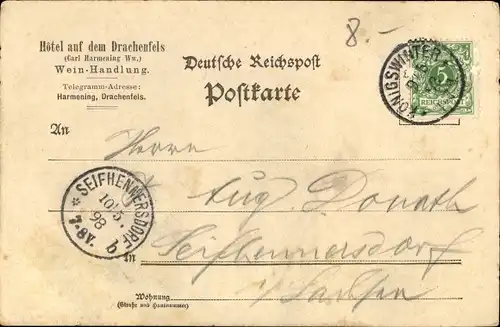 8.-
Hôtel auf dem Drachenfels
(Carl Harmening Ww.)
Wein-Handlung.
Telegramm-Adresse:
Harmening, Drachenfels.
Deutsche Reichspost
Postkarte
KÖNIGSWINTER
5
REICHSPOST
An
Herrn
Aug. Donath
SEIFHENNERSDORF
10/5.
98
7-8V.
b
in Seifhennersdorf
i/Sachsen
Wohnung
(Straße und Hausnummer)